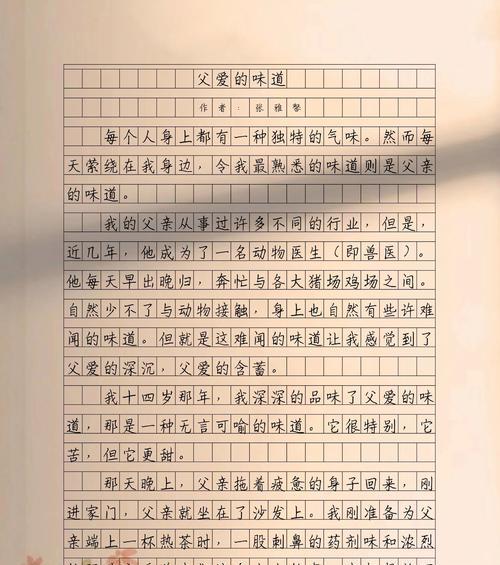 父爱的味道
作者：张雅馨
每个人身上都有一种独特的气味。然而每
天萦绕在我身边，令我最熟悉的味道则是父亲
的味道。
我的父亲从事过许多不同的行业，但是，
近几年，他成为了一名动物医生（即兽医）。
他每天早出晚归，奔忙与各大猪场鸡场之间。
自然少不了与动物接触，身上也自然有些许难
闻的味道。但就是这难闻的味道让我感觉到了
父爱的深沉，父爱的含蓄。
我十四岁那年，我深深的品味了父爱的味
道，那是一种无言可喻的味道。它很特别，它
苦，但它更甜。
那天晚上，父亲拖着疲惫的身子回来，刚
进家门，父亲就坐在了沙发上。我刚准备为父
亲端上一杯热茶时，一股刺鼻的药剂味和浓烈